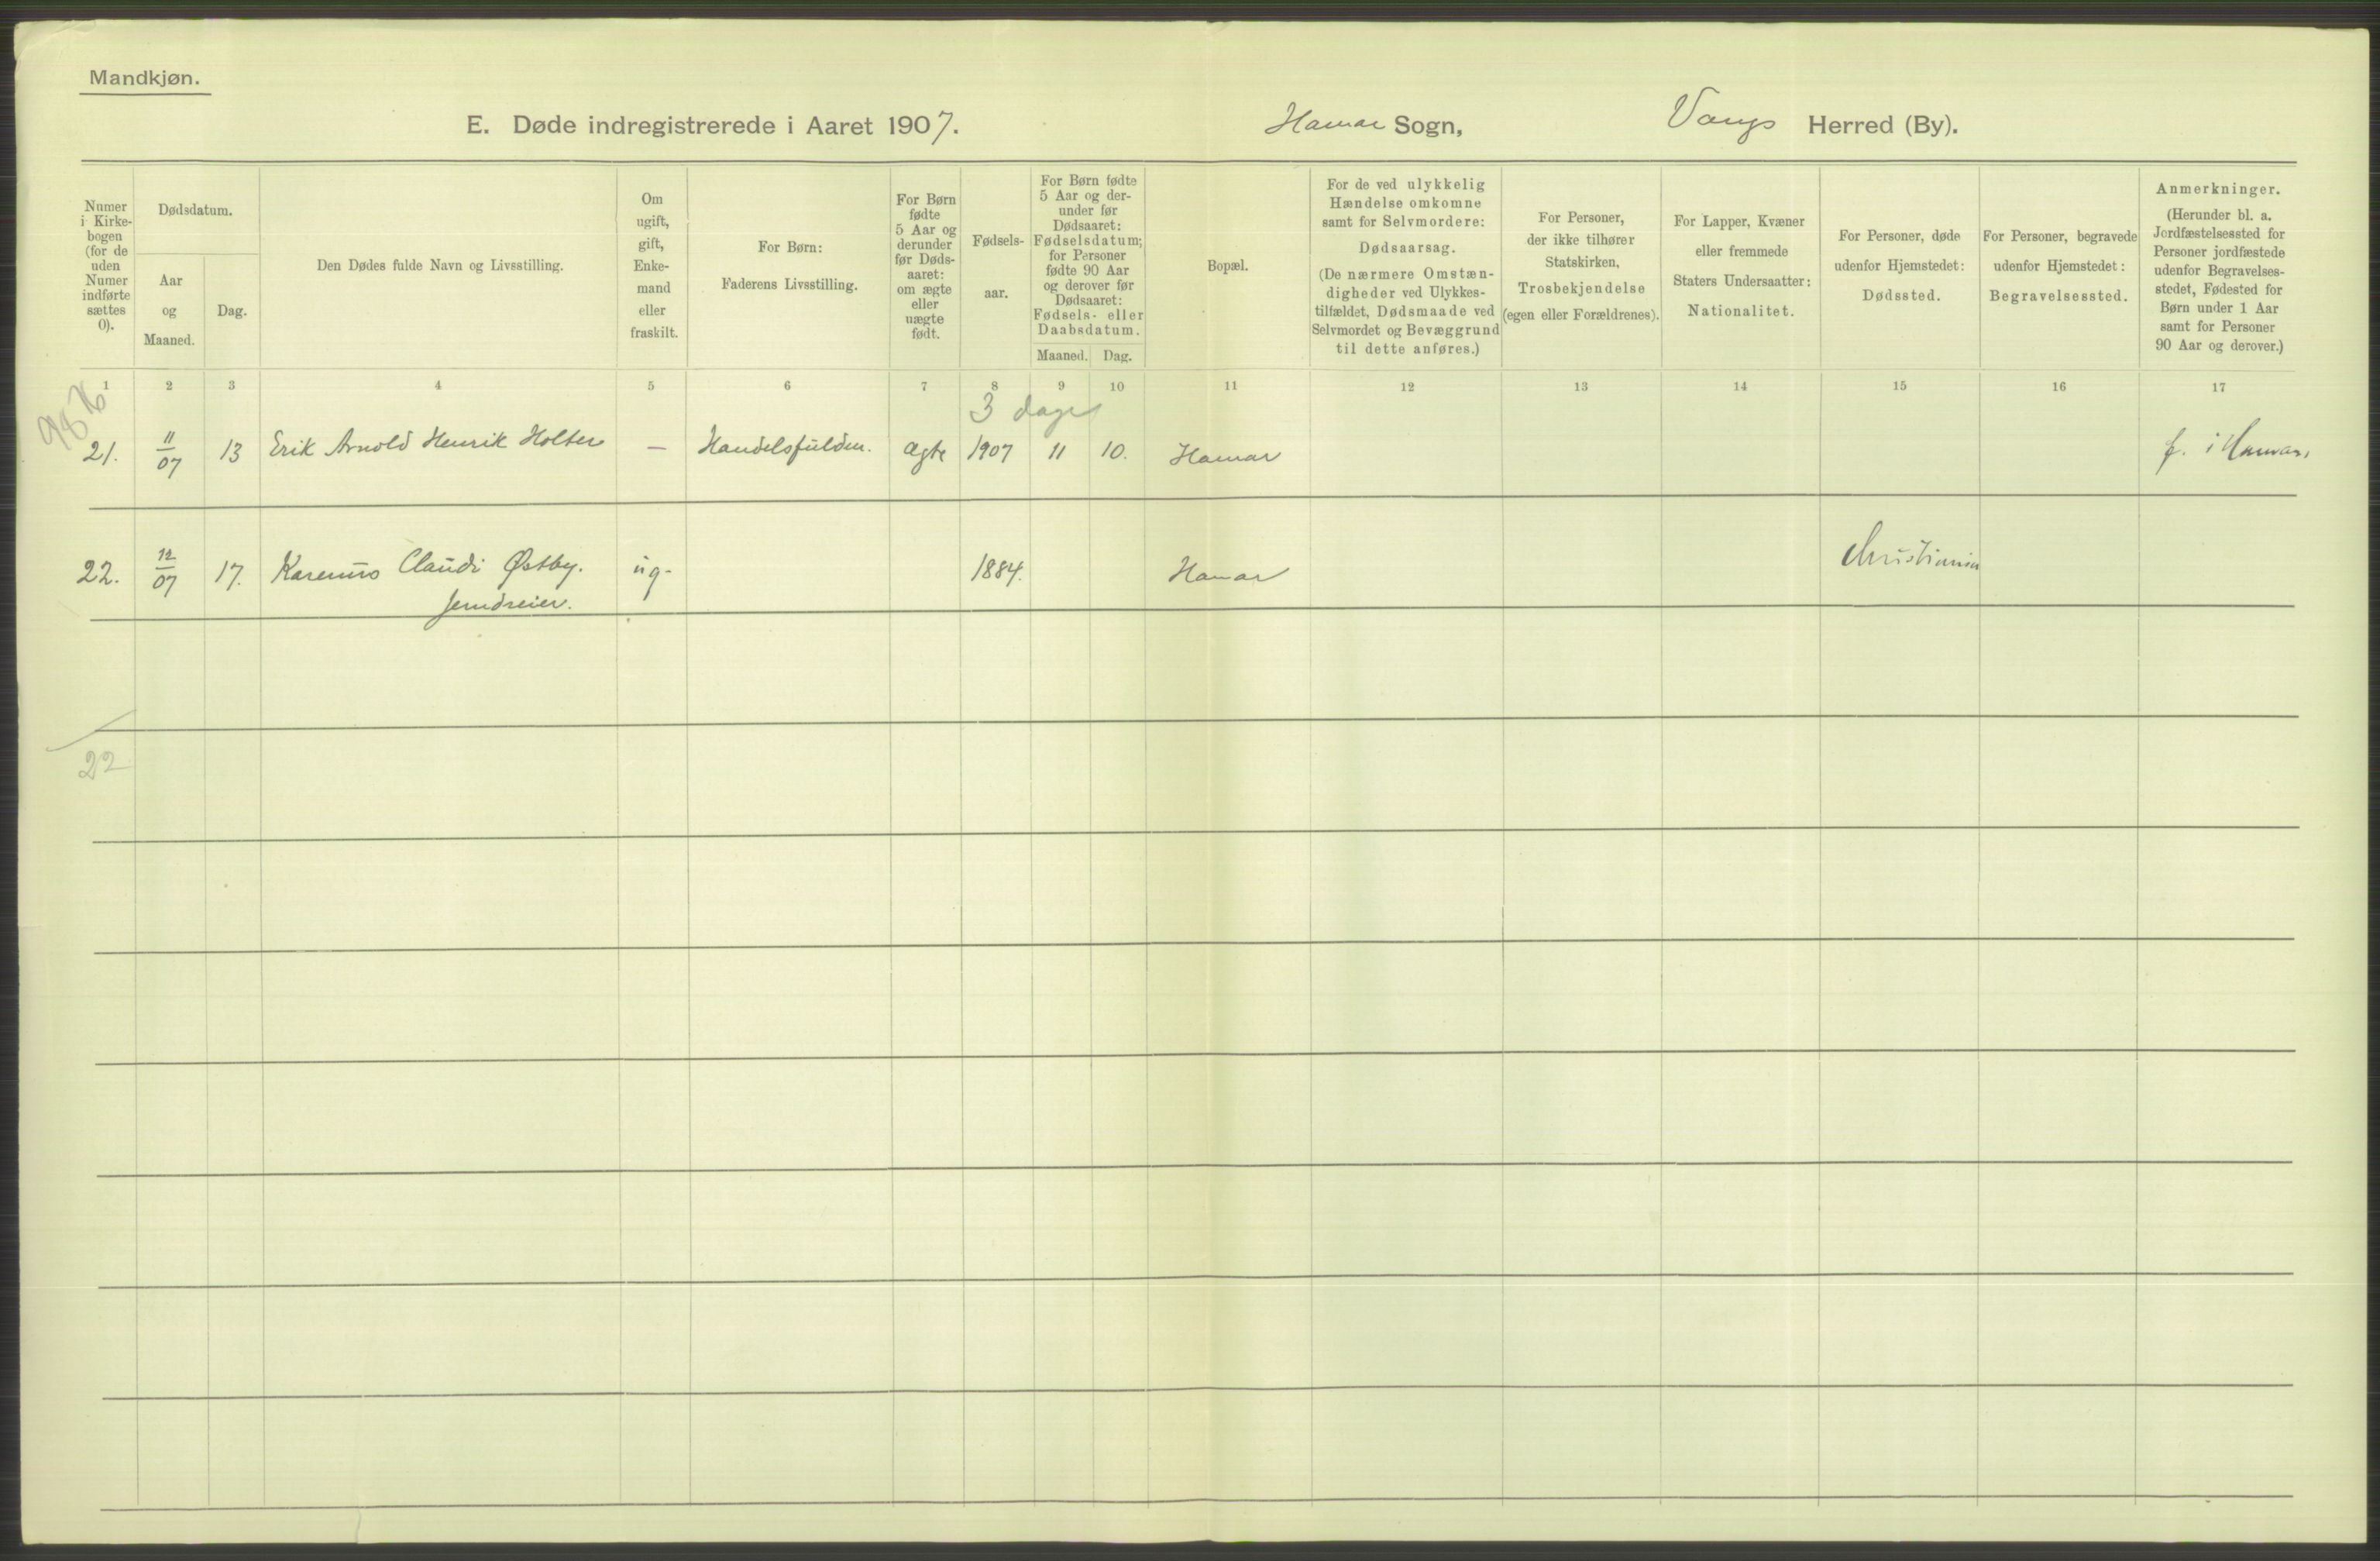 Mandkjøn.
E. Døde indregistrerede i Aaret 1907. Hamar Sogn, Vangs Herred (By).
Numer i Kirke-
bogen
(for de
uden
Numer
indførte
sættes
0).
Dødsdatum.
Aar
og
Maaned.
Dag.
Den Dødes fulde Navn og Livsstilling.
Om
ugift,
gift,
Enke-
mand
eller
fraskilt.
For Børn:
Faderens Livsstilling.
For Børn
fødte
5 Aar og
derunder
før Døds-
aaret:
om ægte
eller
uægte
født.
Fødsels-
aar.
For Børn fødte
5 Aar og der-
under før
Dødsaaret:
Fødselsdatum;
for Personer
fødte 90 Aar
og derover før
Dødsaaret:
Fødsels- eller
Daabsdatum.
Maaned. Dag.
Bopæl.
For de ved ulykkelig
Hændelse omkomne
samt for Selvmordere:
Dødsaarsag.
(De nærmere Omstæn-
digheder ved Ulykkes-
tilfældet, Dødsmaade ved
Selvmordet og Bevæggrund
til dette anføres.)
For Personer,
der ikke tilhører
Statskirken,
Trosbekjendelse
(egen eller Forældrenes).
For Lapper, Kvæner
eller fremmede
Staters Undersaatter:
Nationalitet.
For Personer, døde
udenfor Hjemstedet:
Dødssted.
For Personer, begravede
udenfor Hjemstedet:
Begravelsessted.
Anmerkninger.
(Herunder bl. a.
Jordfæstelsessted for
Personer jordfæstede
udenfor Begravelses-
stedet, Fødested for
Børn under 1 Aar
samt for Personer
90 Aar og derover.)
1 2 3 4 5 6 7 8 9 10 11 12 13 14 15 16 17
3 dage
21. 11/07 13 Erik Arnold Henrik Holter — Handelsfuldm. ægte 1907 11 10. Hamar f. i Hamar.
22. 12/07 17. Karenus Claudi Østby. ug. 1884. Hamar Christiania
Jerndreier.
22